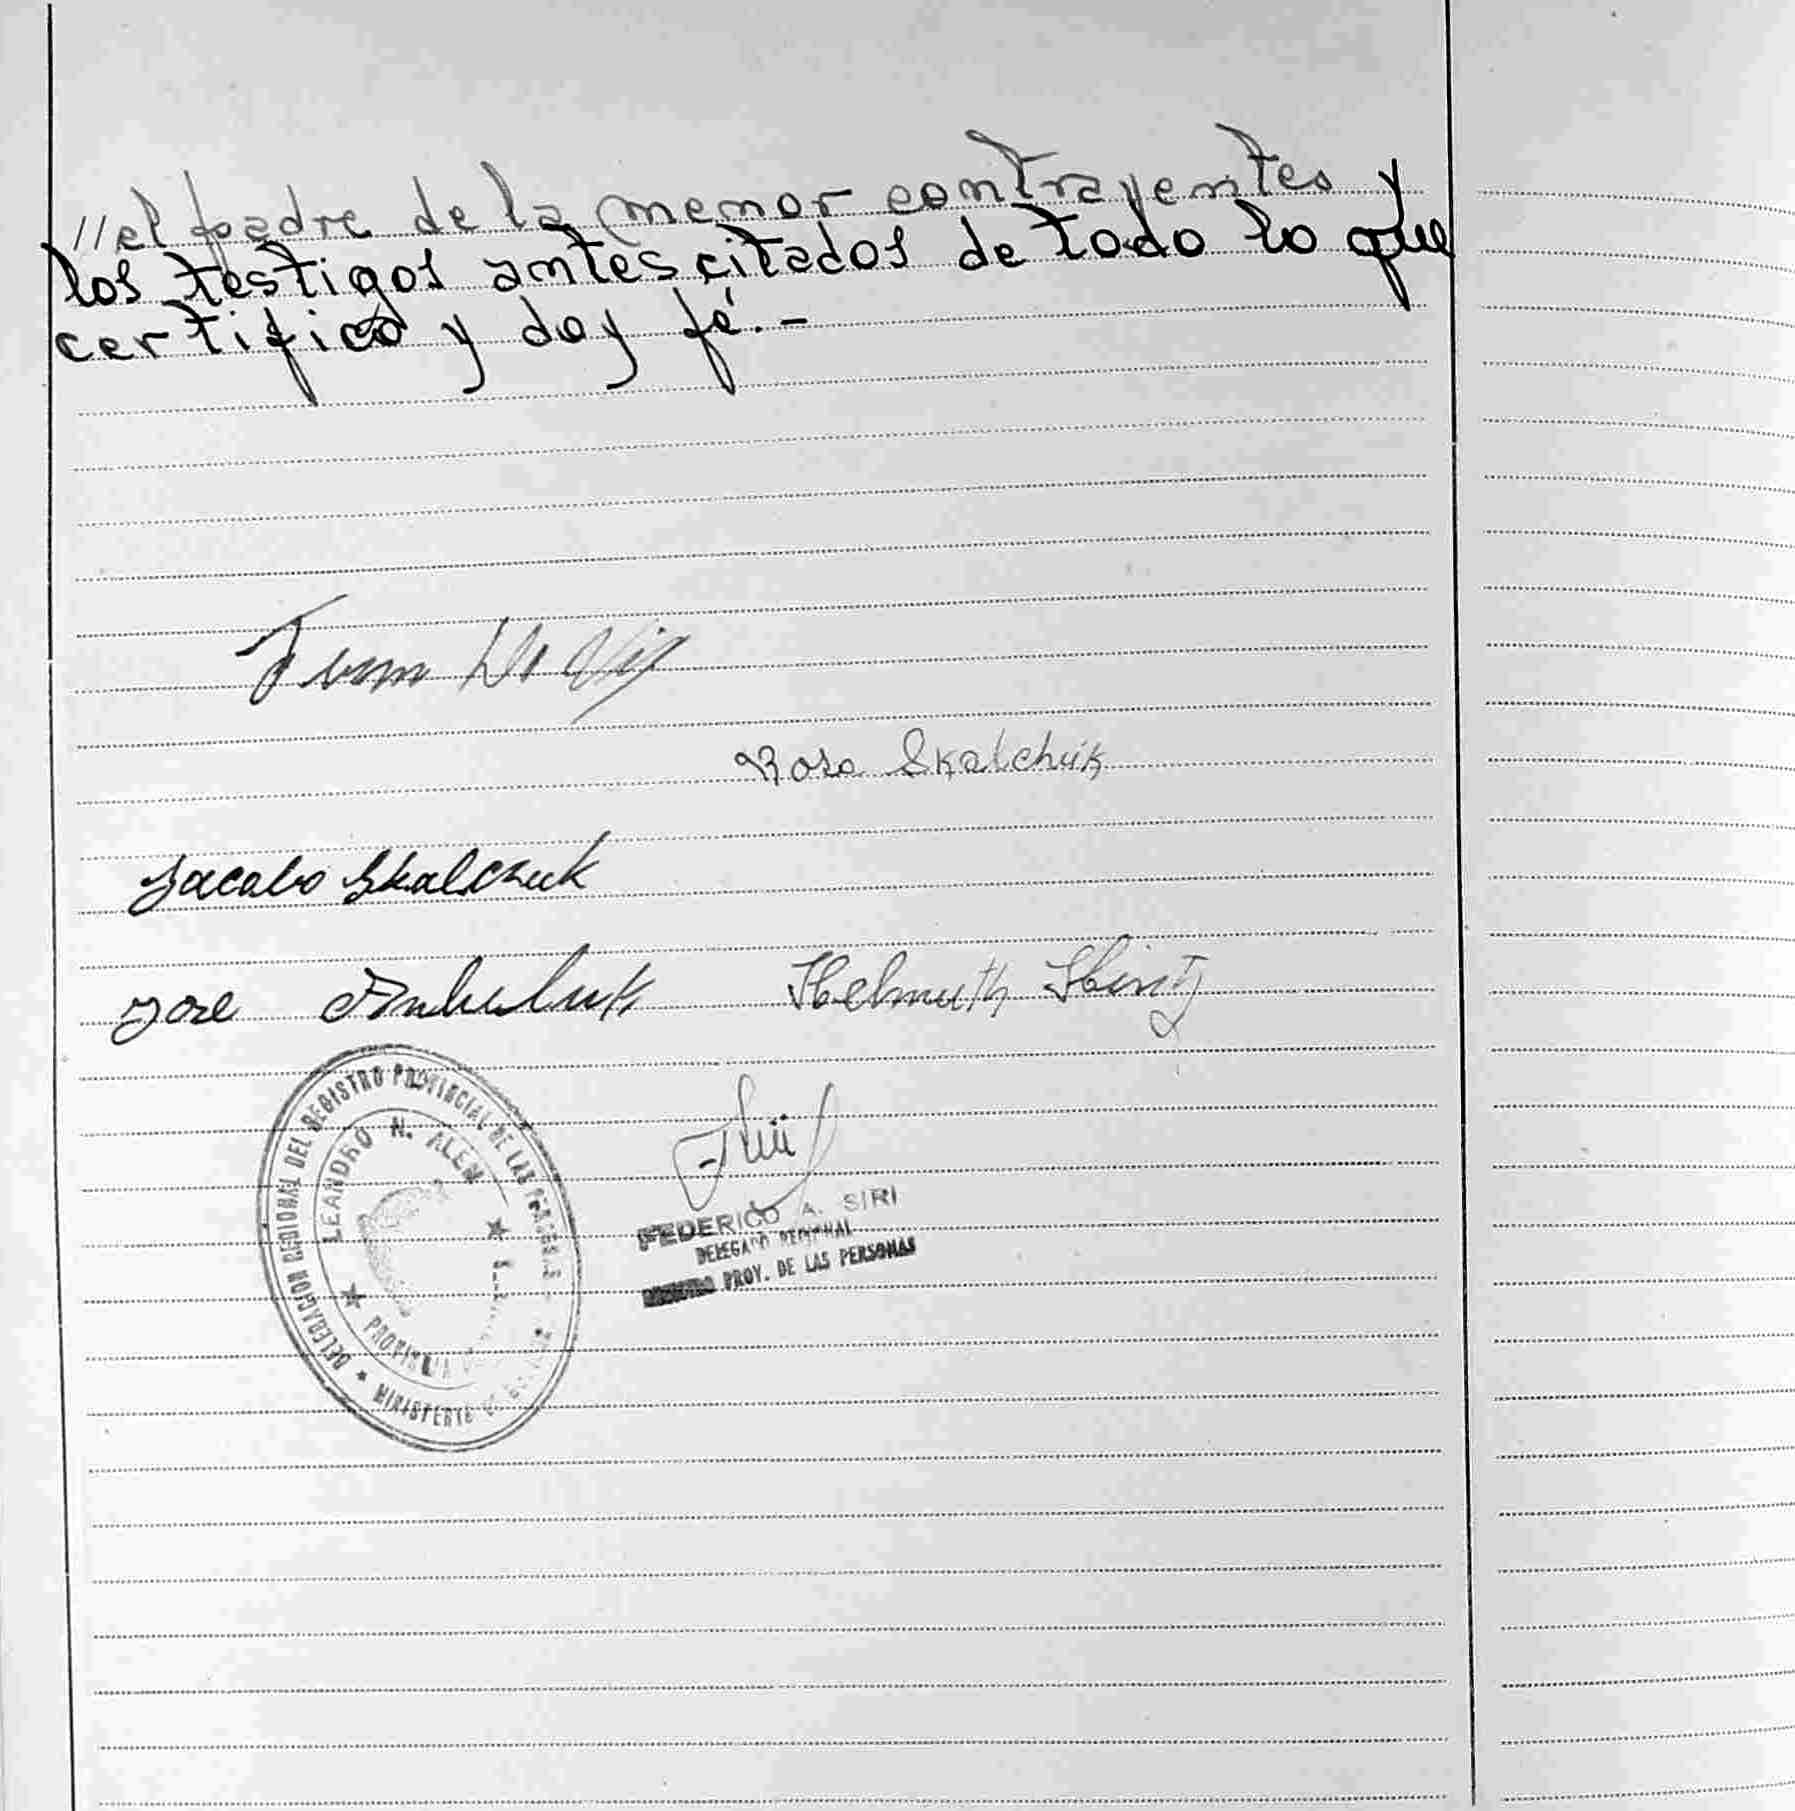 //el padre de la menor contrayentes y
los testigos antes citados de todo lo que
certifico y doy fé.-
Rosa Skalchuk
Jacabo Skalchuk
Jose
Helmuth Hintz
DELEGACION REGIONAL DEL REGISTRO PROVINCIAL DE LAS PERSONAS
LEANDRO N. ALEM
★ PROVINCIA ★
★ MINISTERIO
FEDERICO A. SIRI
DELEGADO REGIONAL
PROV. DE LAS PERSONAS